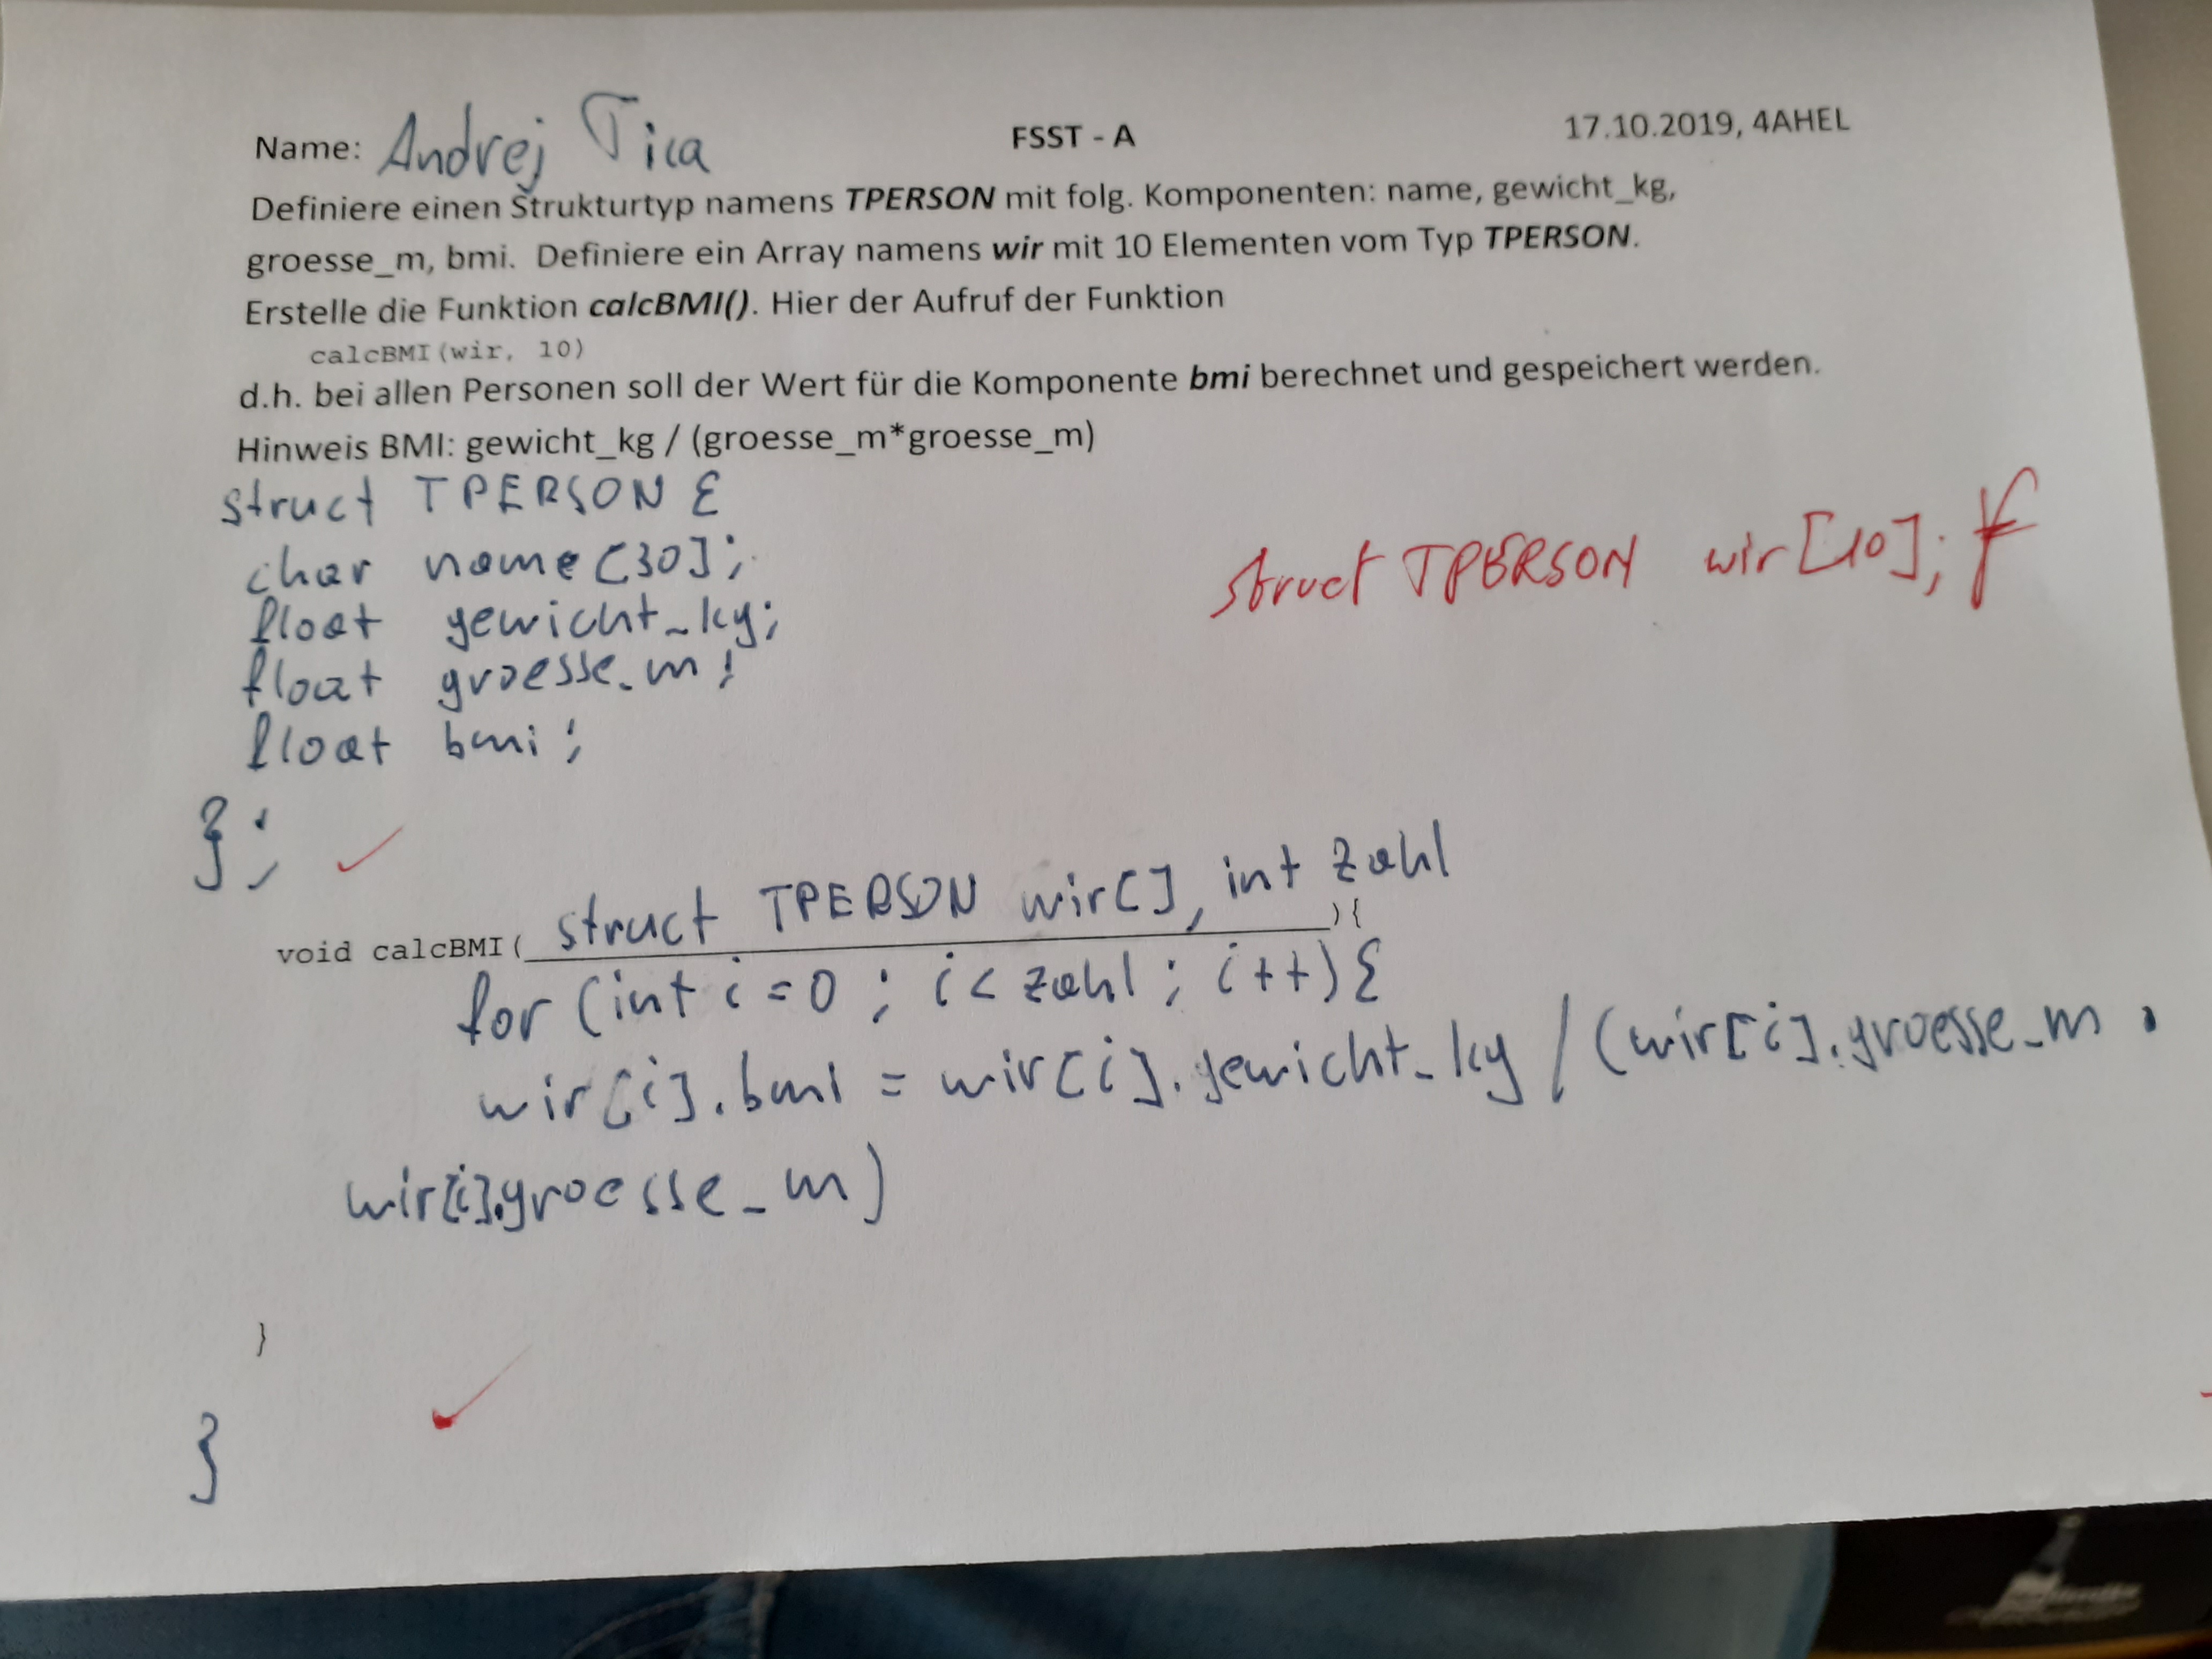 Name: Andrej Tica FSST - A 17.10.2019, 4AHEL
Definiere einen Strukturtyp namens TPERSON mit folg. Komponenten: name, gewicht_kg,
groesse_m, bmi. Definiere ein Array namens wir mit 10 Elementen vom Typ TPERSON.
Erstelle die Funktion calcBMI(). Hier der Aufruf der Funktion
calcBMI(wir, 10)
d.h. bei allen Personen soll der Wert für die Komponente bmi berechnet und gespeichert werden.
Hinweis BMI: gewicht_kg / (groesse_m*groesse_m)
struct TPERSON {
char name[30];
struct TPERSON wir[10]; f
float gewicht_kg;
float groesse_m;
float bmi;
};
void calcBMI(struct TPERSON wir[], int zahl){
for (int i = 0 ; i < zahl ; i++){
wir[i].bmi = wir[i].gewicht_kg / (wir[i].groesse_m .
wir[i].groesse_m)
}
}